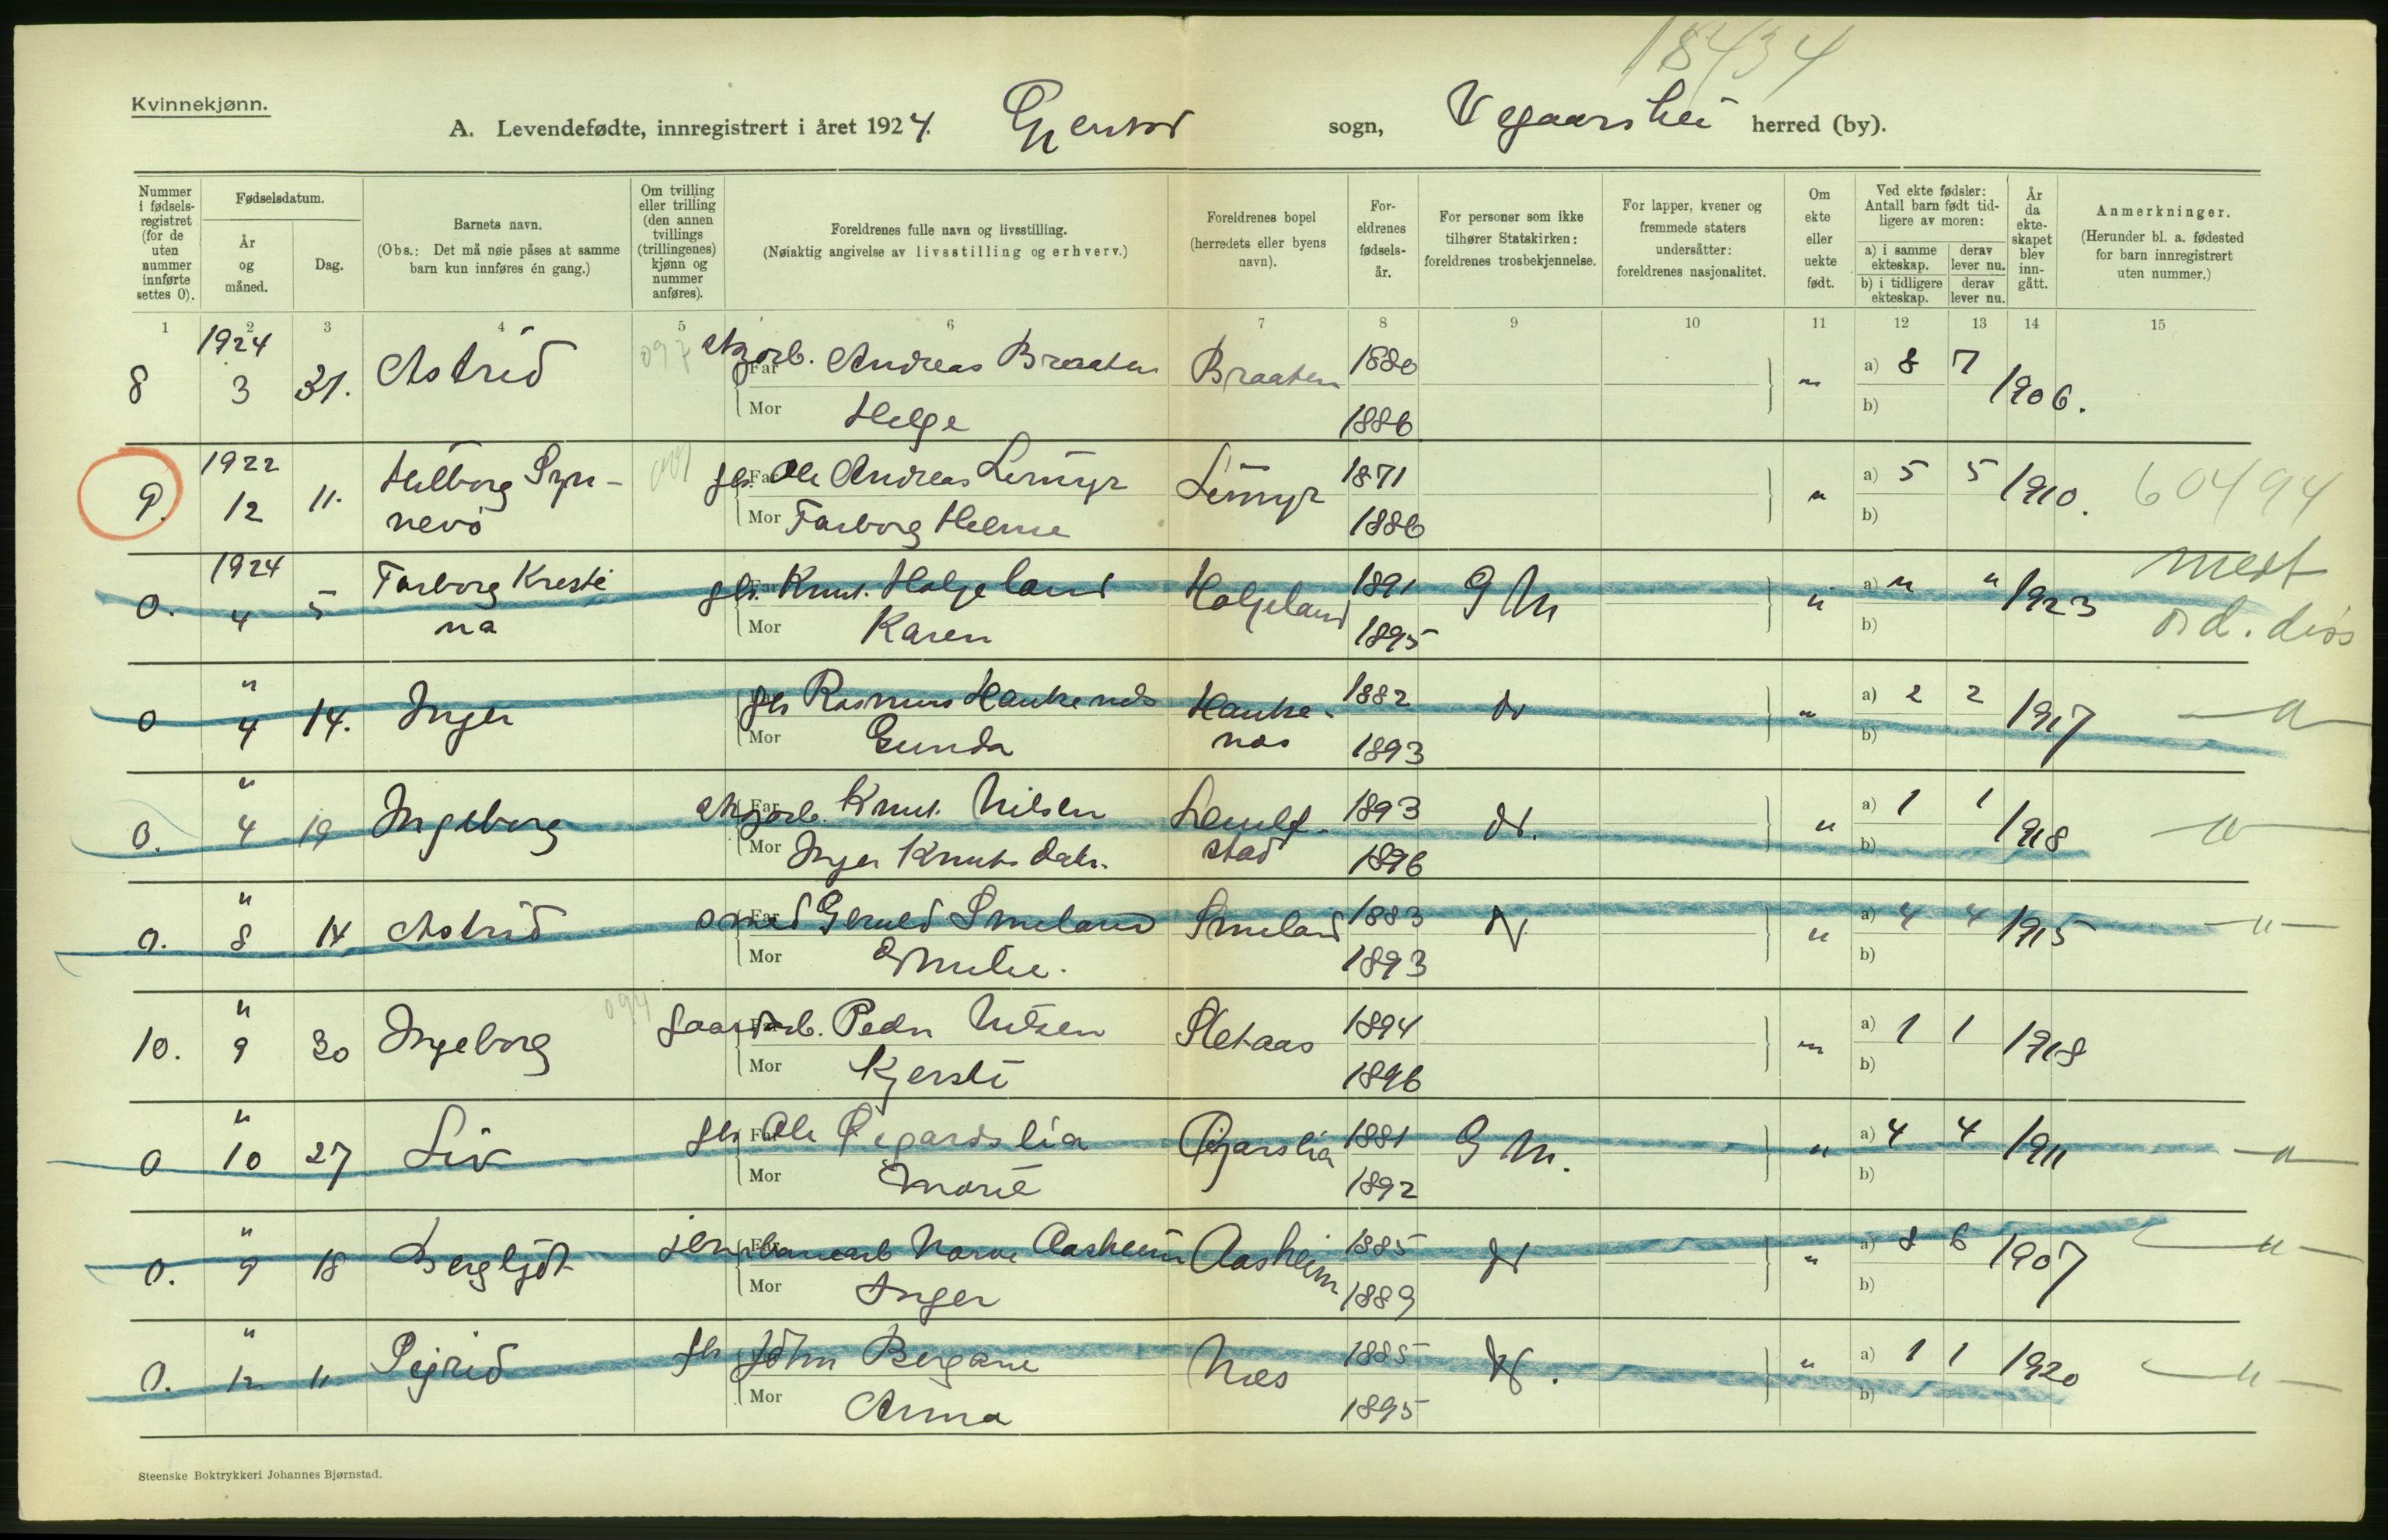 18434
Kvinnekjønn.
A. Levendefødte, innregistrert i året 1924. Gjerstad sogn, Vegaarshei herred (by).
Nummer i fødsels-registret (for de uten nummer innførte settes 0).
Fødselsdatum.
År og måned.
Dag.
Barnets navn.
(Obs.: Det må nøie påses at samme barn kun innføres én gang.)
Om tvilling eller trilling (den annen tvillings (trillingenes) kjønn og nummer anføres).
Foreldrenes fulle navn og livsstilling.
(Nøiaktig angivelse av livsstilling og erhverv.)
Foreldrenes bopel (herredets eller byens navn).
For-eldrenes fødsels-år.
For personer som ikke tilhører Statskirken: foreldrenes trosbekjennelse.
For lapper, kvener og fremmede staters undersåtter: foreldrenes nasjonalitet.
Om ekte eller uekte født.
Ved ekte fødsler: Antall barn født tid-ligere av moren:
a) i samme ekteskap. derav lever nu.
b) i tidligere ekteskap. derav lever nu.
År da ekte-skapet blev inn-gått.
Anmerkninger.
(Herunder bl. a. fødested for barn innregistrert uten nummer.)
1 2 3 4 5 6 7 8 9 10 11 12 13 14 15
8 1924 3 31. Astrid 097 Far Andreas Braaten Braaten 1880 " a) 8 7 1906.
Mor Helge 1886 b)
9. 1922 12 11. Hilborg Syn-nevö Far Ole Andreas Limyr Limyr 1871 " a) 5 5 1910. 60494
Mor Tarborg Helene 1886 b)
0. 1924 4 5 Tarborg Kresti na gbr. Far Knut Holjeland Holjeland 1891 G M " a) " " 1923 medt
Mor Karen 1895 b) ord. diss
0 " 4 14. Inger gbr Rasmus Haukenæs Hauke-næs 1882 do " a) 2 2 1917 -"-
Mor Gunda 1893 b)
0. " 4 19 Ingeborg Far Knut Nilsen 1893 do. " a) 1 1 1918 -"-
Mor Inger Knutsdatr. 1896 b)
0. " 8 14 Astrid Far Smeland Smeland 1883 do " a) 4 4 1915 -"-
Mor Emilie. 1893 b)
10. " 9 30 Ingeborg 094 gaardarb. Peder Nilsen Sletaas 1894 " a) 1 1 1918
Mor Kjersti 1896 b)
0 " 10 27 Liv gbr Far Ole 1881 G M. " a) 4 4 1911 -"-
Mor Marie 1892 b)
0. " 9 18 Bergljot jernbanearb Aasheim Aasheim 1885 do " a) 8 6 1907 -"-
Mor Inger 1889 b)
0. " 12 11 Sigrid gbr John Bergane Næs 1885 do. " a) 1 1 1920 -"-
Mor Anna 1895 b)
Steenske Boktrykkeri Johannes Bjørnstad.